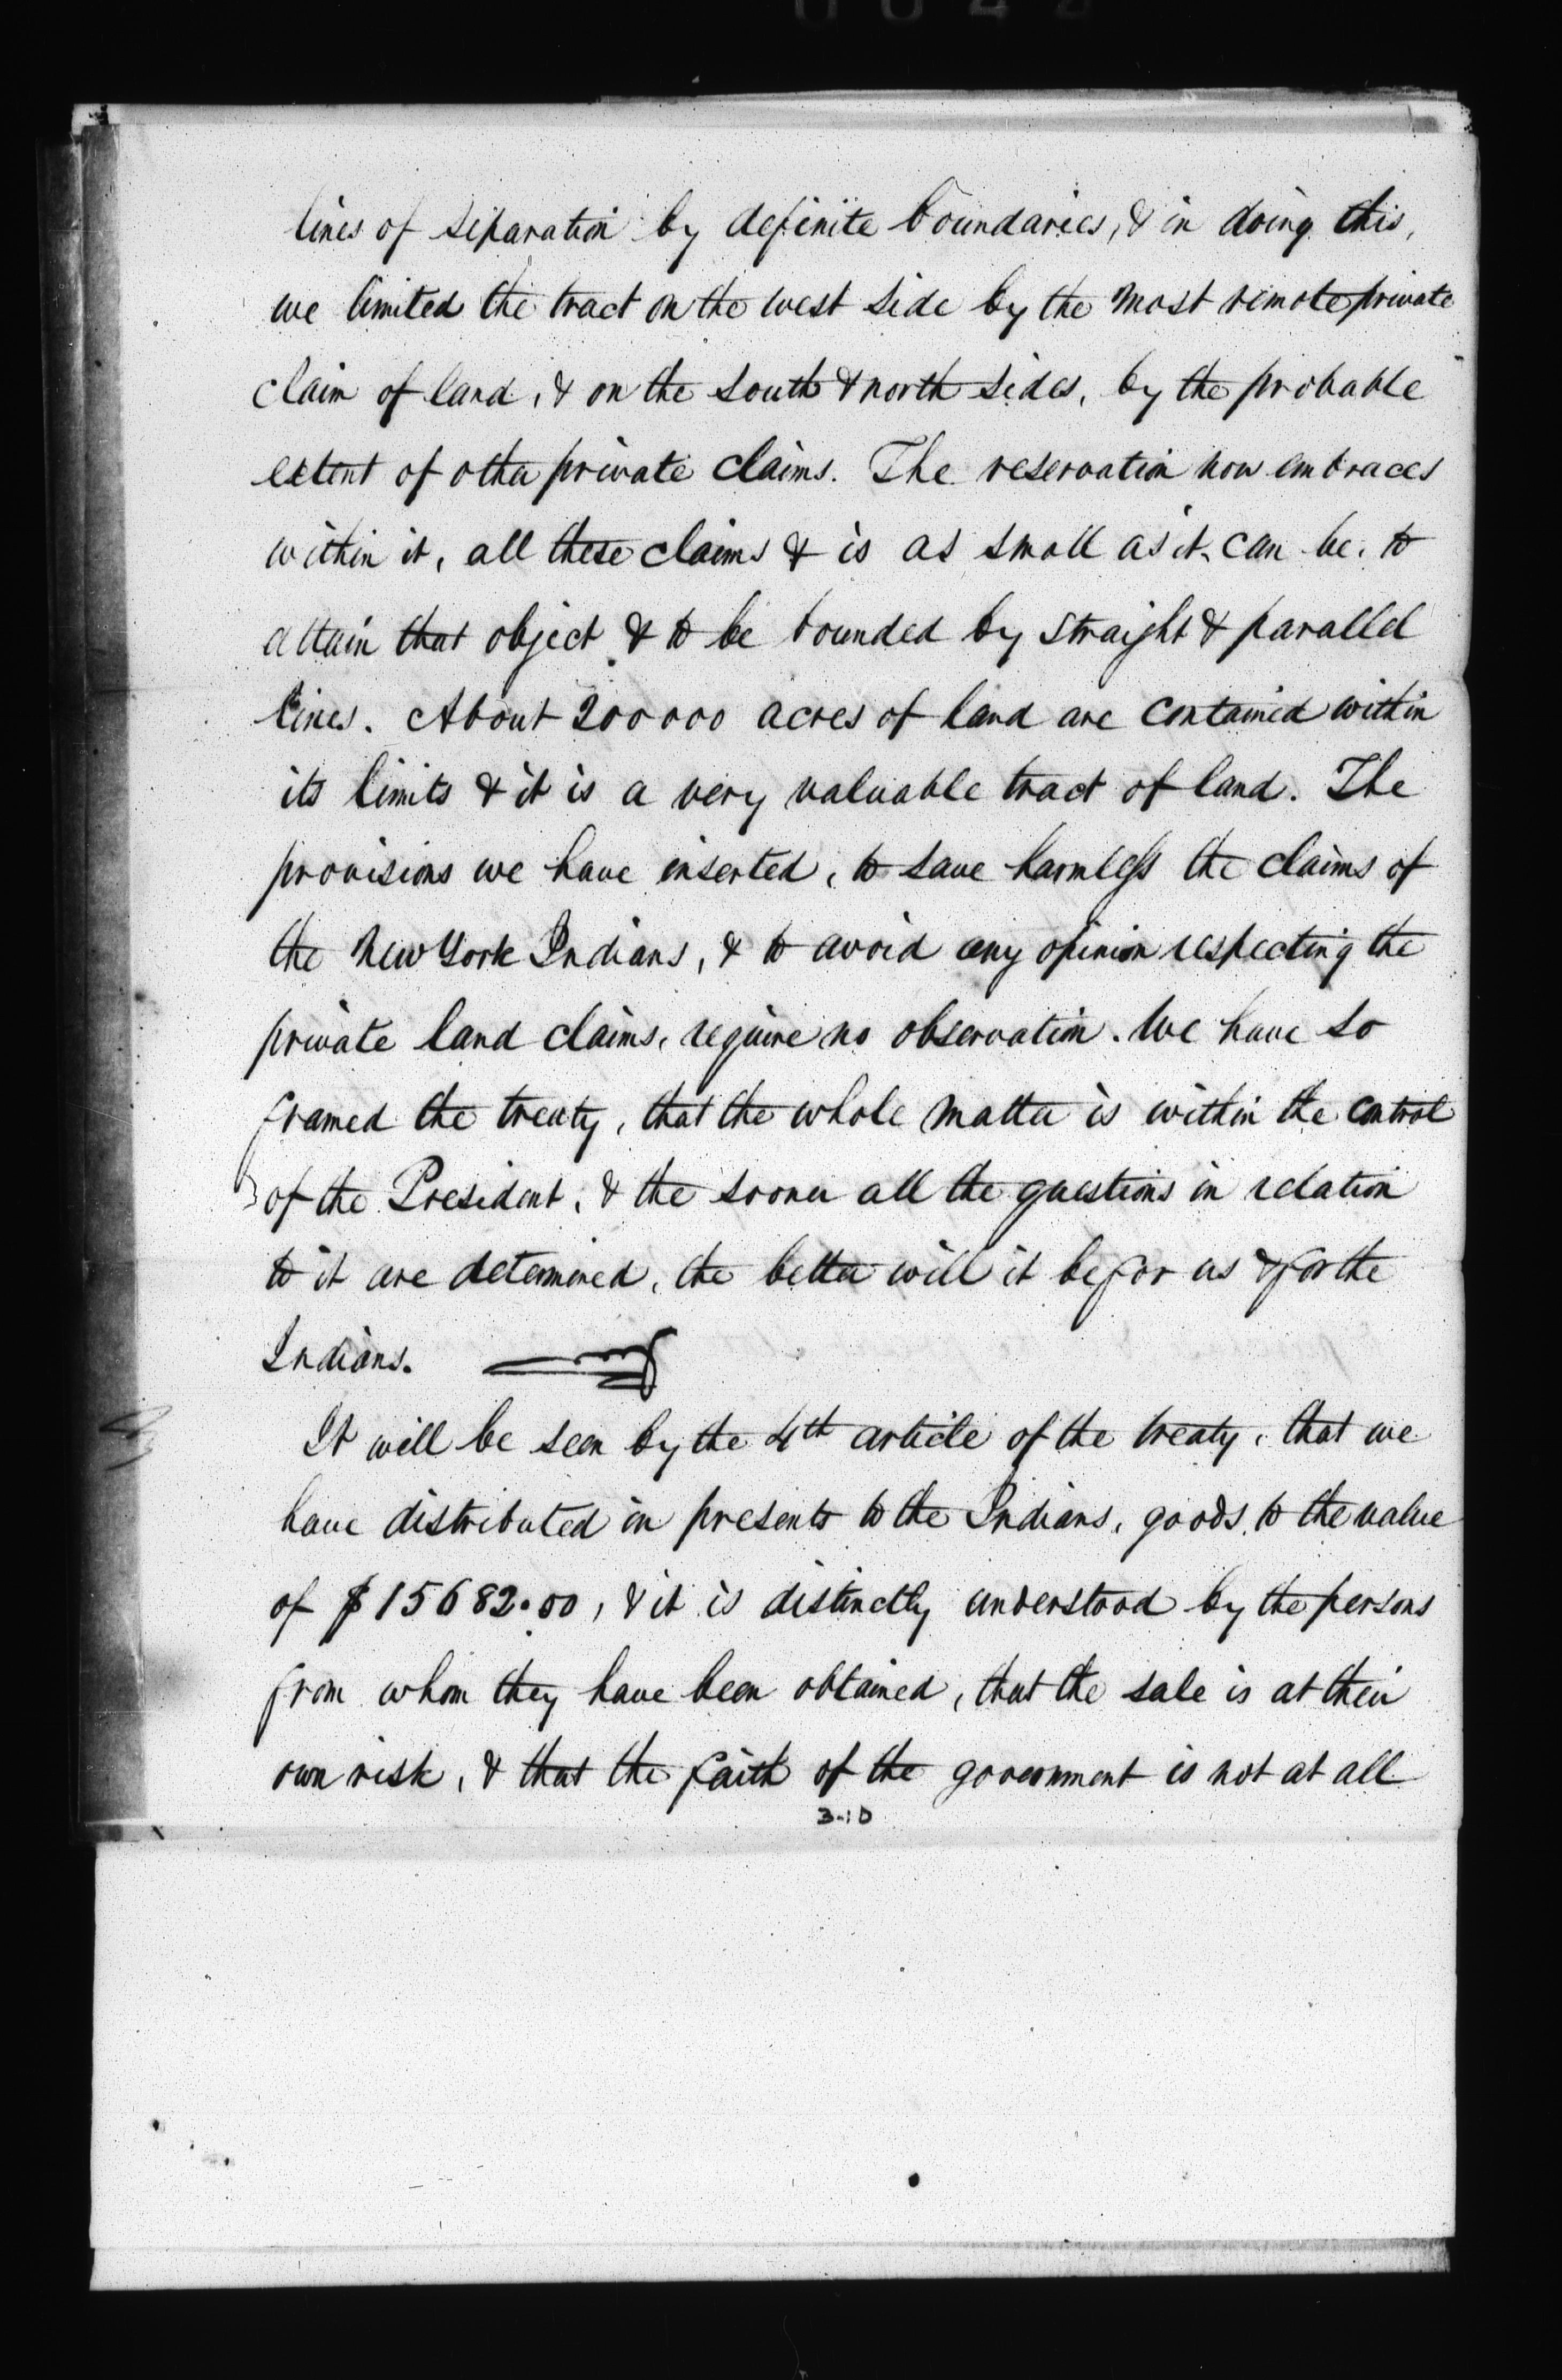 lines of separation by definite boundaries, & in doing this,
we limited the tract on the west side by the most remote private
claim of land, & on the south & north sides, by the probable
extent of other private claims. The reservation now embraces
within it, all these claims & is as small as it can be, to
attain that object & to be bounded by straight & parallel
lines. About 200000 acres of land are contained within
its limits & it is a very valuable tract of land. The
provisions we have inserted, to save harmless the claims of
the New York Indians, & to avoid any opinion respecting the
private land claims, require no observation. We have so
framed the treaty, that the whole matter is within the control
of the President, & the sooner all the questions in relation
to it are determined, the better will it be for us & for the
Indians.
It will be seen by the 4th article of the treaty, that we
have distributed in presents to the Indians, goods, to the value
of $15682.00, & it is distinctly understood by the persons
from whom they have been obtained, that the sale is at their
own risk, & that the faith of the government is not at all